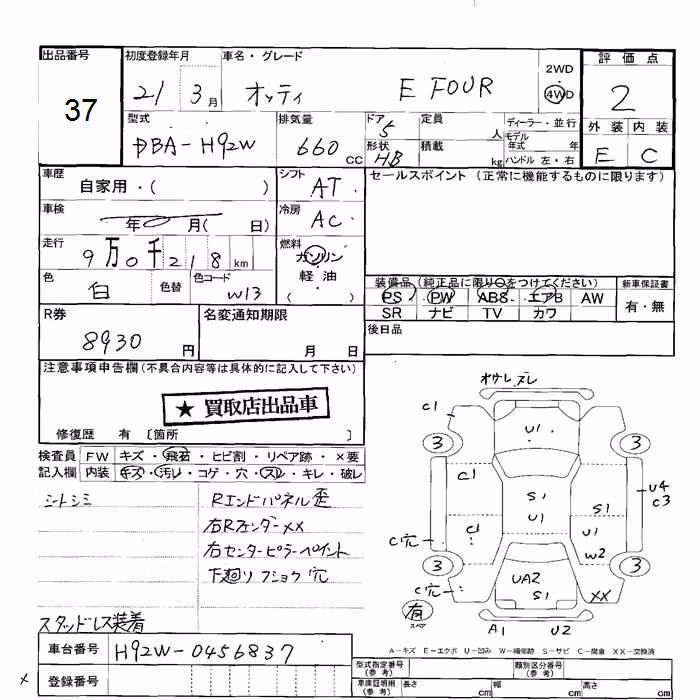 出品番号
37
初度登録年月
21 3月
車名・グレード
オッティ E FOUR
2WD
4WD
評価点
2
外装 内装
E C
型式
DBA-H92W
排気量
660 cc
ドア 5
形状 HB
定員 人
積載 kg
ディーラー・並行
モデル年式 年
ハンドル 左・右
車歴
自家用・( )
シフト
AT
セールスポイント (正常に機能するものに限ります)
車検
年 月( 日)
冷房
AC
走行
9万0千218km
燃料
ガソリン
軽油
( )
色
白
色替
色コード
W13
装備品 (純正品に限り○をつけてください)
PS PW ABS エアB AW
SR ナビ TV カワ
新車保証書
有・無
R券
8930 円
名変通知期限
月 日
後日品
注意事項申告欄(不具合内容等は具体的に記入して下さい)
★ 買取店出品車
修復歴 有 〔箇所 〕
検査員記入欄
FW キズ・飛石・ヒビ割・リペア跡・×要
内装 キズ・汚レ・コゲ・穴・スレ・キレ・破レ
シートシミ
Rエンドパネル歪
右Rフェンダーxx
右センターピラーペイント
下廻りフショク穴
スタッドレス装着
オサレ ズレ
C1
U1
3
3
C1
S1
U1
S1
U4
C3
C1
U1
W2
C穴
3
3
C穴
UA2
S1
XX
有
スペア
A1 U2
A-キズ E-エクボ U-凹み W-補修跡 S-サビ C-腐食 XX-交換済
車台番号
H92W-0456837
登録番号
型式指定番号
(参考)
類別区分番号
(参考)
車庫証明用
(参考)
長さ cm 幅 cm 高さ cm
x